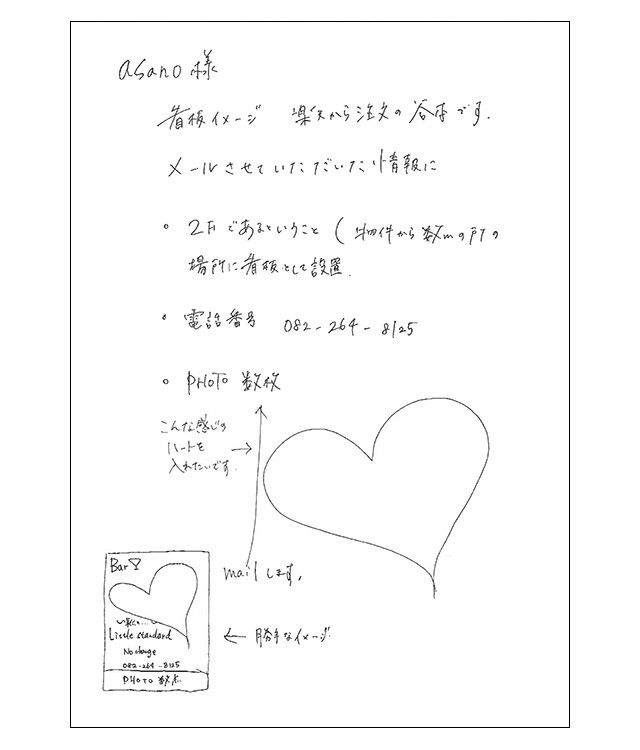 asano様
看板イメージ 楽天から注文の谷本です.
メールさせていただいた情報に
2Fであるということ ( 物件から数mのPTの
場所に看板として設置.
電話番号 082-264-8125
PHOTO 数枚
こんな感じの
ハートを
入れたいです.
→
mailします.
← 勝手なイメージ
Bar
Little standard
No charge
082-264-8125
PHOTO 数点